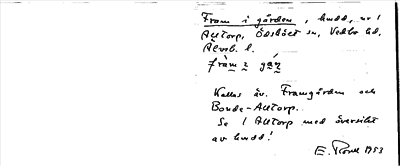 Fram i gården, hudd, nr 1
Alltorp, Ödskölt sn, Vedbo hd,
Älvsb. l.
Kallas äv. Framgården och
Bonde-Alltorp.
Se 1 Alltorp med översikt
av hudd!
E. 1953